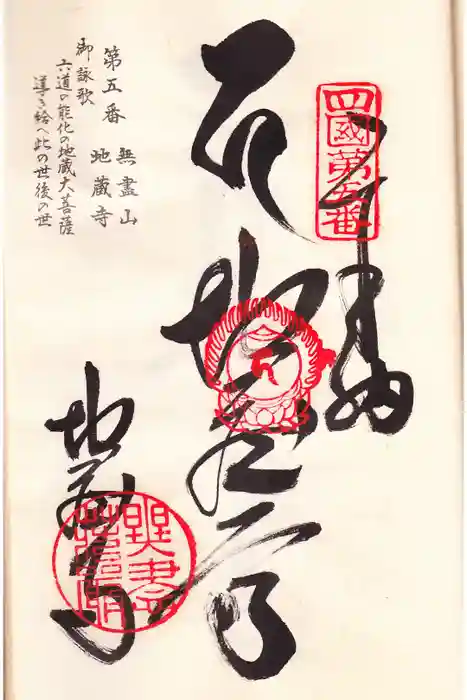 四國第五番
奉納
地蔵
地蔵寺
第五番
無盡山
地蔵寺
御詠歌
六道の能化の地蔵大菩薩
導き給へ此の世後の世